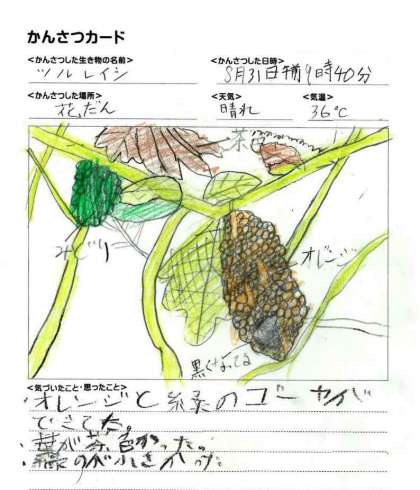 かんさつカード
<かんさつした生き物の名前> <かんさつした日時>
ツルレイシ 8月31日午前9時40分
<かんさつした場所> <天気> <気温>
花だん 晴れ 36℃
茶色
みどり
オレンジ
黒くなってる
<気づいたこと・思ったこと>
・オレンジと緑のゴーヤが
できてた。
・葉が茶色かった。
・緑のが小さかった